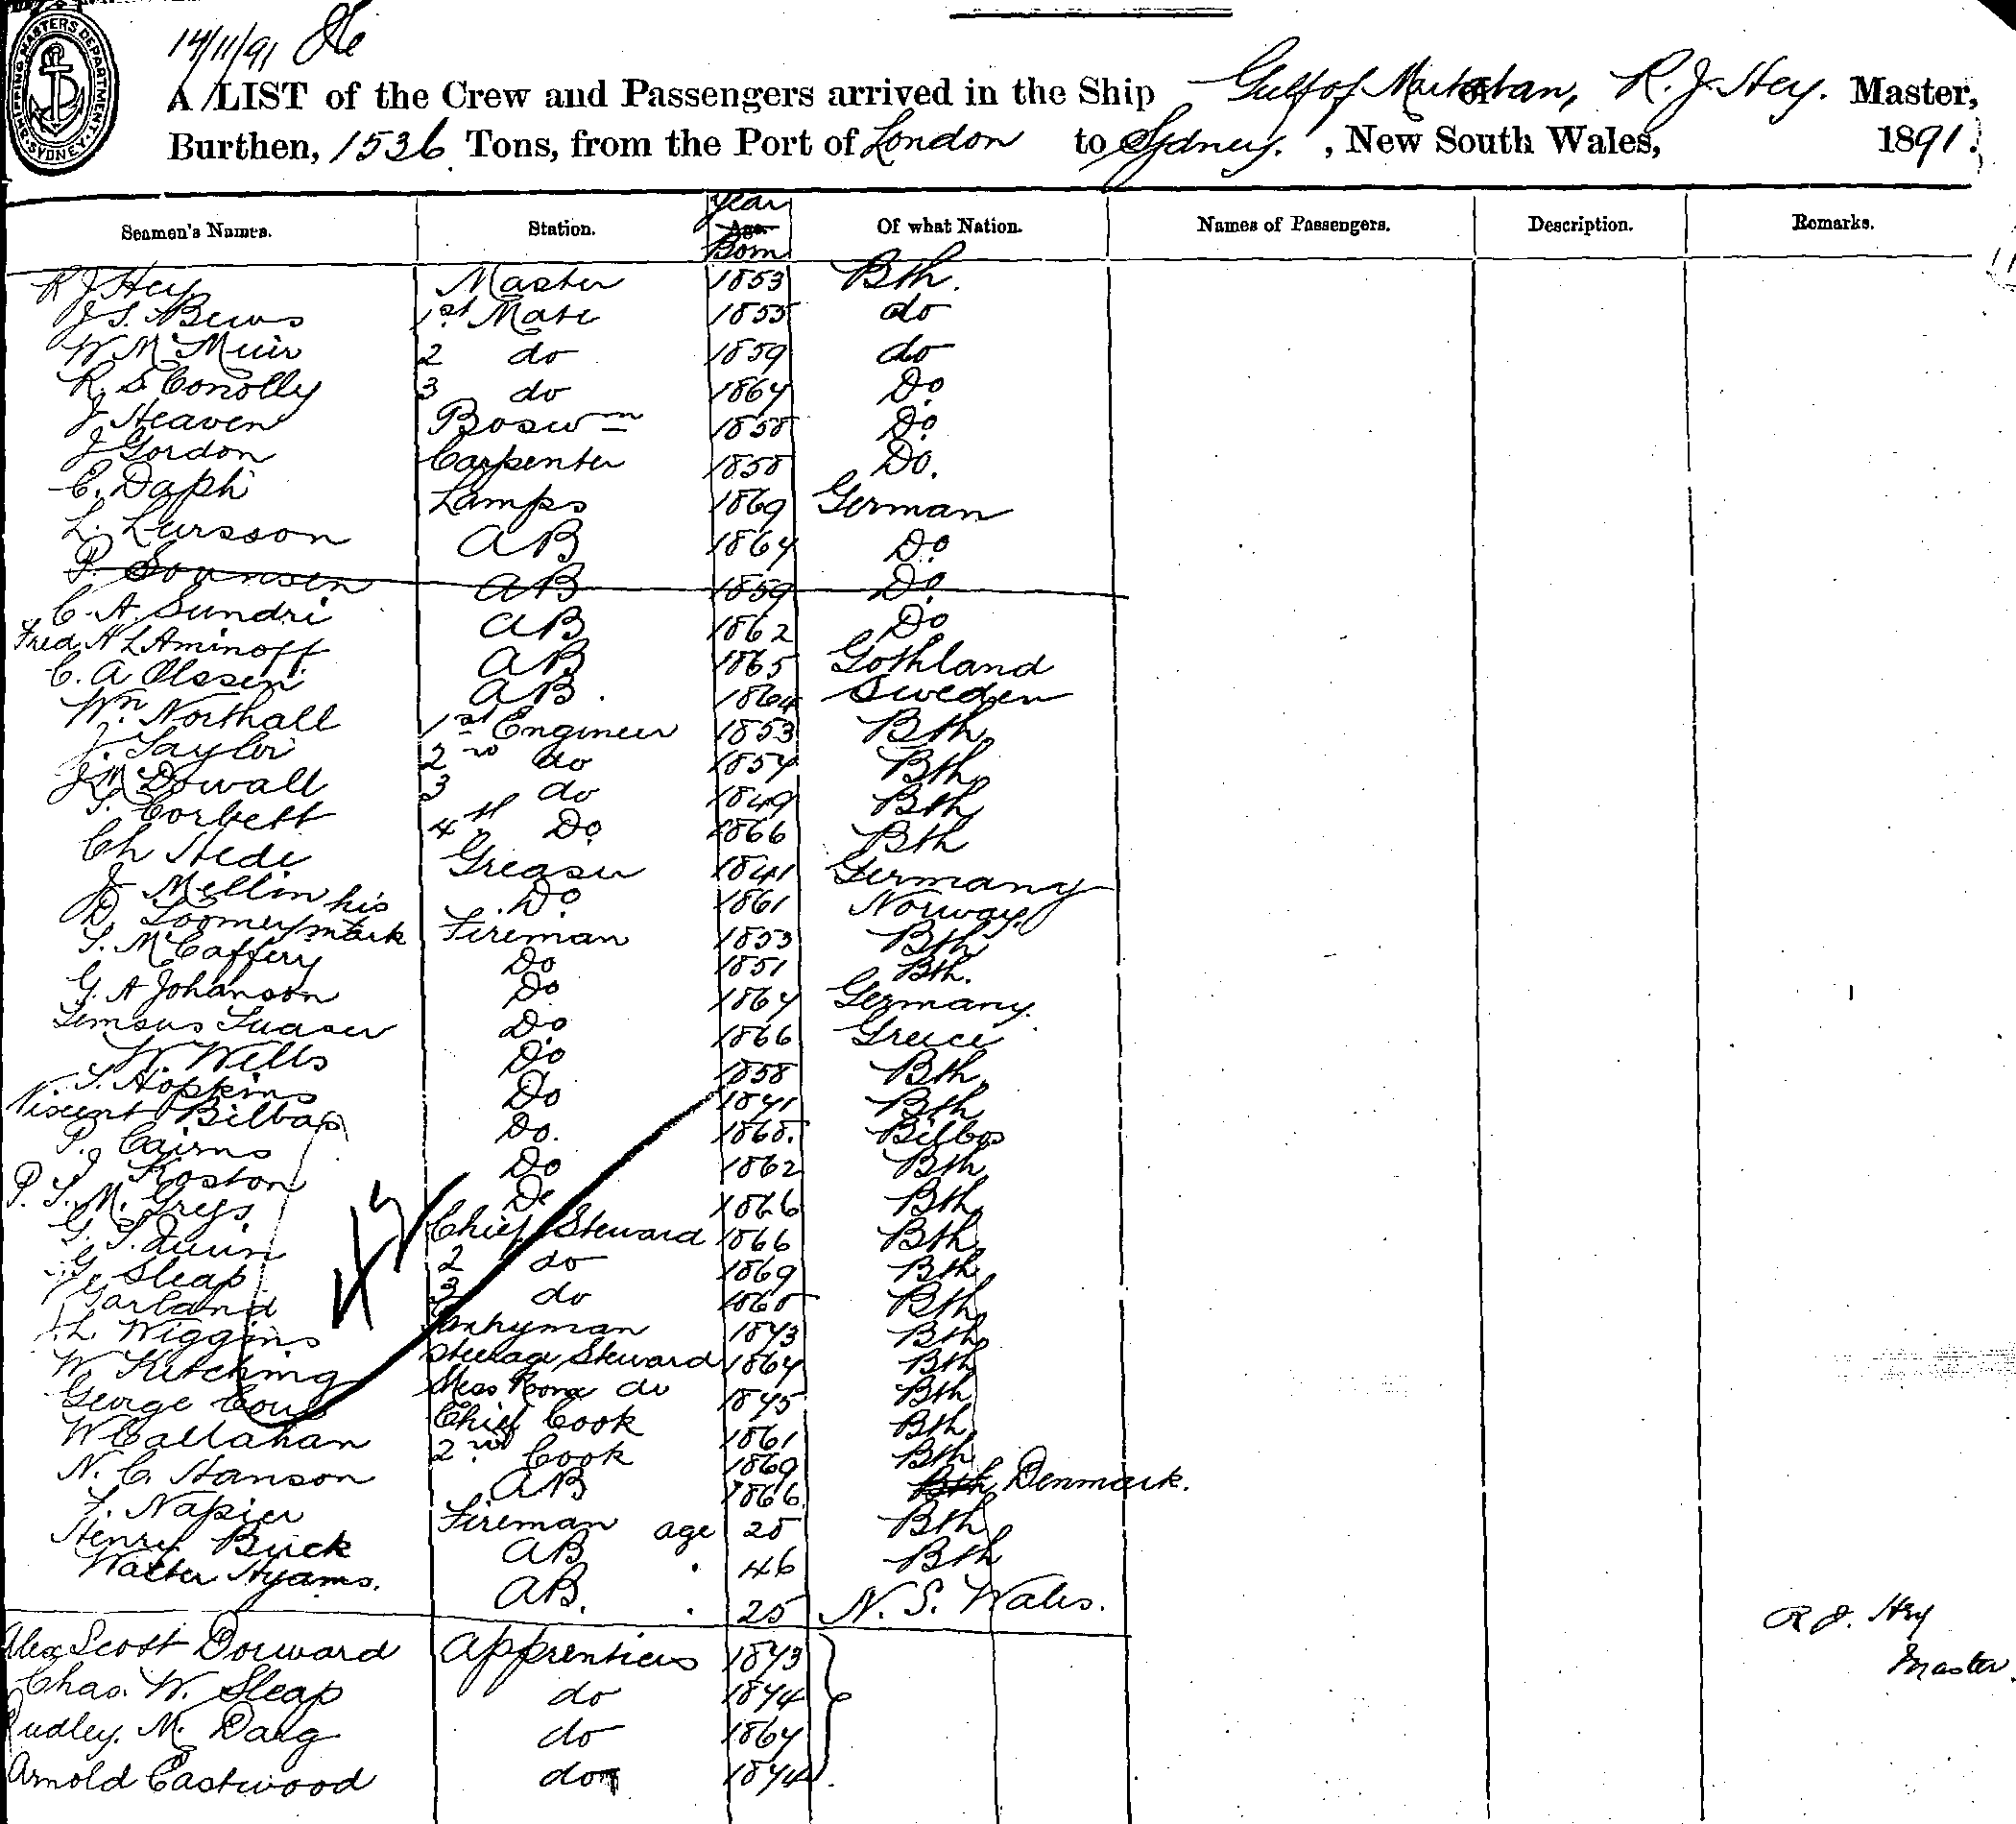 SHIPPING MASTERS DEPARTMENT. SYDNEY.
14/11/91
A LIST of the Crew and Passengers arrived in the Ship Gulf of Martaban, of R. J. Hey. Master,
Burthen, 1536 Tons, from the Port of London to Sydney. , New South Wales, 1891.
Seamen's Names. Station. Year Age Born Of what Nation. Names of Passengers. Description. Remarks.
R J Hey Master 1853 Bth.
J S. Bews 1st Mate 1855 do
W M Muir 2 do 1859 do
R. S. Conolly 3 do 1864 Do
J Heaven Boswn 1858 Do
J Gordon Carpenter 1858 Do.
C. Daph Lamps 1869 German
L. Lursson AB 1864 Do
P. Sounsen AB 1859 Do
C. A. Sundri AB 1862 Do
Fred A L Aminoff AB 1865 Gothland
C. A Olssen AB. 1864 Sweden
Wm. Northall 1st Engineer 1853 Bth
J. Taylor 2nd do 1854 Bth
J M Dowall 3 do 1849 Bth
T. Corbett 4th Do 1866 Bth
Ch Hede Greaser 1841 Germany
J Mellin Do 1861 Norway.
D. Toomey his mark Fireman 1853 Bth
T. McCaffery Do 1851 Bth.
G. A Johanson Do 1864 Germany.
Do 1866 Greece
W. Wells Do 1858 Bth
T. Hopkins Do 1841 Bth
Viscent Bilbao Do. 1868. Bilbao
P. Cairns Do 1862 Bth
J Koston Do 1866 Bth
P. S. M. Greys. Chief Steward 1866 Bth
G. T. Quin 2 do 1869 Bth
G. Sleap 3 do 1868 Bth
Garland 1873 Bth
L. Wiggins Steerage Steward 1864 Bth
W Kitching Mess Room do 1845 Bth
George Chief Cook 1861 Bth
W Callahan 2nd Cook 1869 Bth
N. C. Hanson AB 1866 Bth Denmark.
F. Napier Fireman age 28 Bth
Henry Buck AB 46 Bth
Walter Hyams. AB. 25 N. S. Wales.
R J. Hey
Master.
Alex Scott Dorward Apprentices 1873
Chas. W. Sleap do 1874
Dudley. M. Darg do 1864
Arnold Eastwood do 1874
43